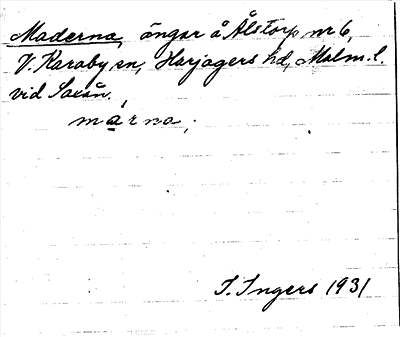 Maderna, ängar å Ålstorp nr 6,
V. Karaby sn, Harjagers hd, Malm. l.
vid Saxån.
marna,
I. Ingers 1931